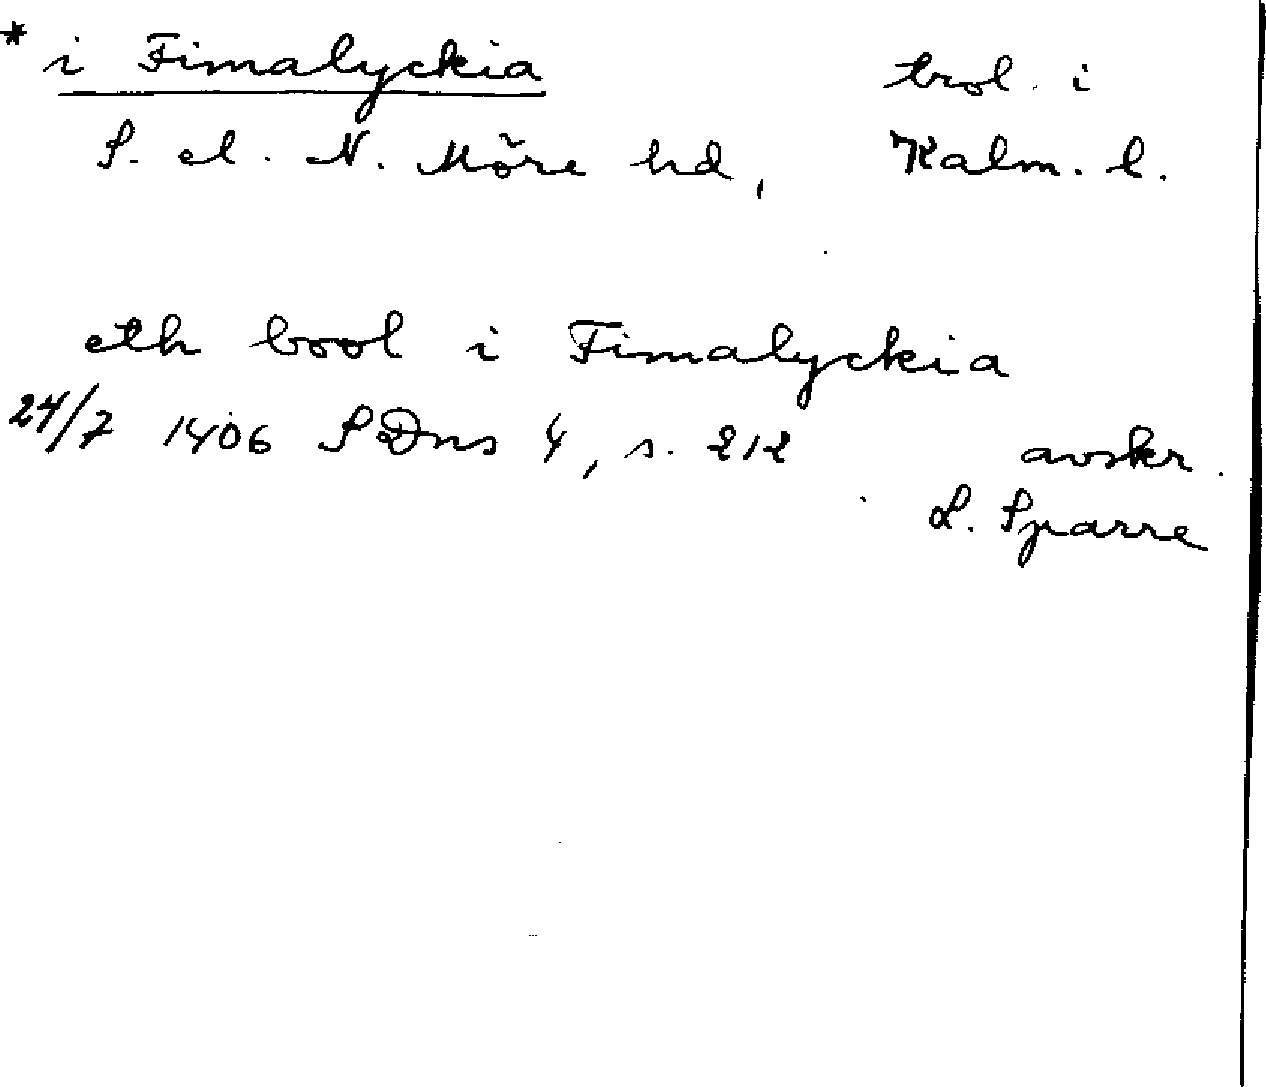 * i Fimalyckia trol. i
S. el. N. Möre hd, Kalm. l.
eth bool i Fimalyckia
24/7 1406 SDns 4, s. 212 avskr.
L. Sparre